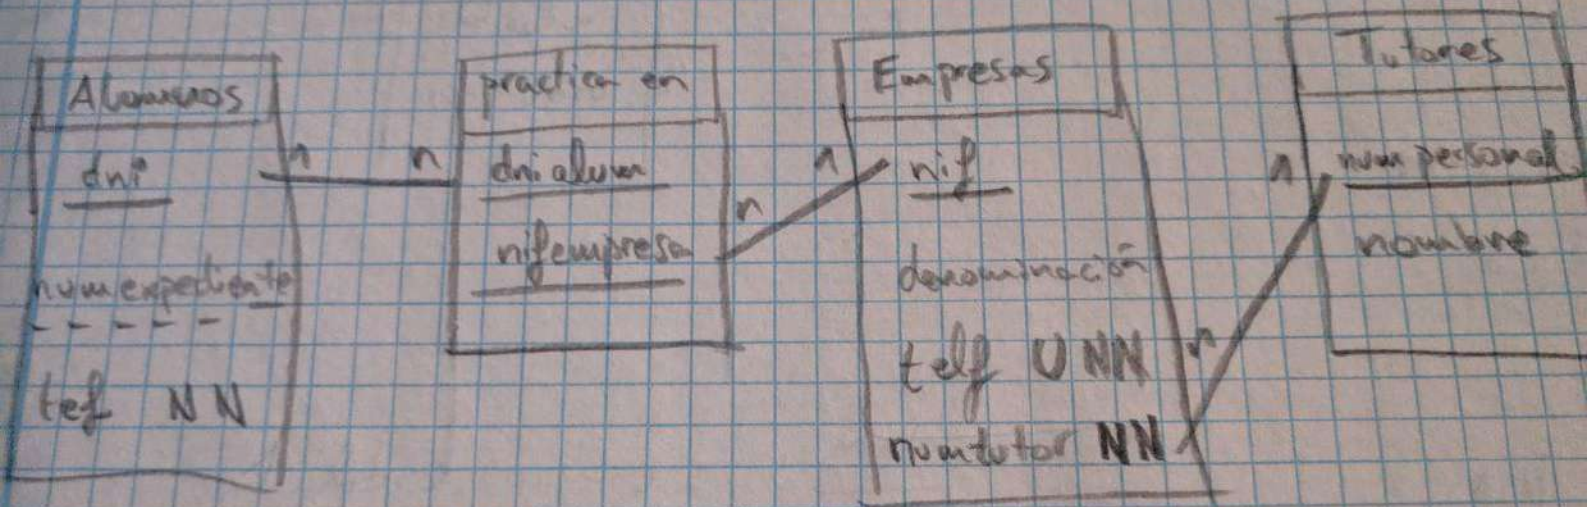 Alumnos
dni
numexpediente
tef NN
1 n
practica en
dni alum
nifempresa
n 1
Empresas
nif
denominación
telf U NN
numtutor NN
n 1
Tutores
num personal
nombre